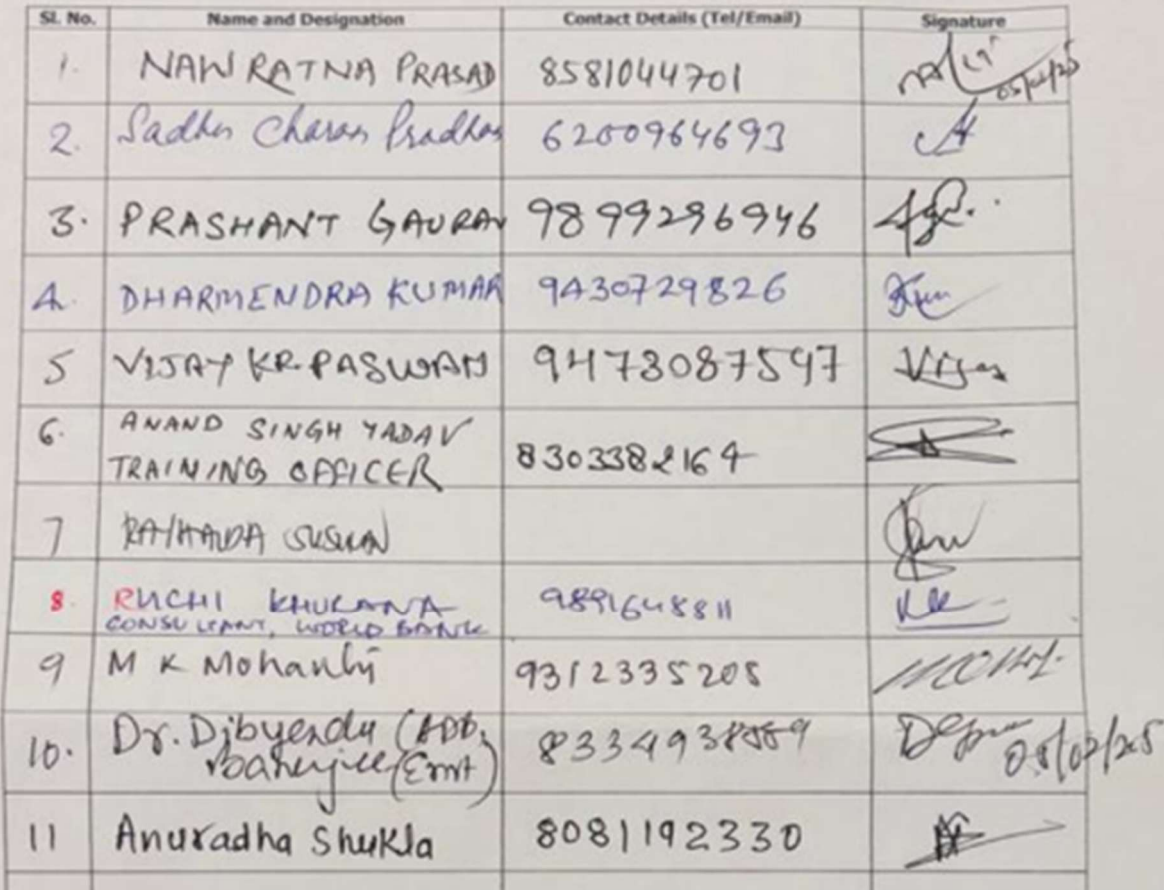 Sl. No. Name and Designation Contact Details (Tel/Email) Signature
1. NAW RATNA PRASAD 8581044701
05/02/25
2. Sadhu Charan Pradhan 6200964693
3. PRASHANT GAURAV 9899296946
4. DHARMENDRA KUMAR 9430729826
5 VIJAY KR. PASWAN 9473087547 Vijay
6. ANAND SINGH YADAV
TRAINING OFFICER 8303382164
7
8. RUCHI KHURANA 9891648811
CONSULTANT, WORLD BANK
9 M K Mohanty 9312335205
10. Dr. Dibyendu (ADB,
Banerjee (Emt)
05/02/25
11 Anuradha Shukla 8081192330